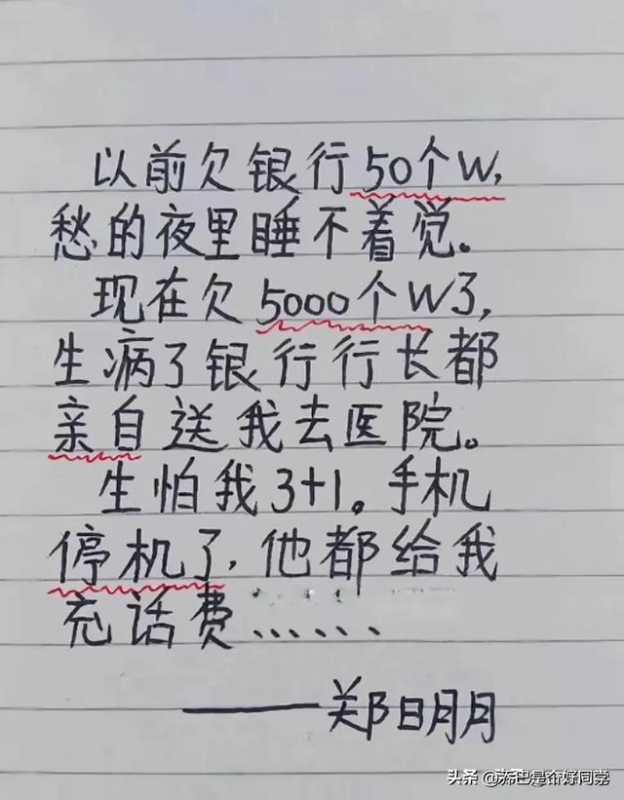 以前欠银行50个W,
愁的夜里睡不着觉。
现在欠5000个W3,
生病了银行行长都
亲自送我去医院。
生怕我3+1。手机
停机了,他都给我
充话费……
——郑明月
头条